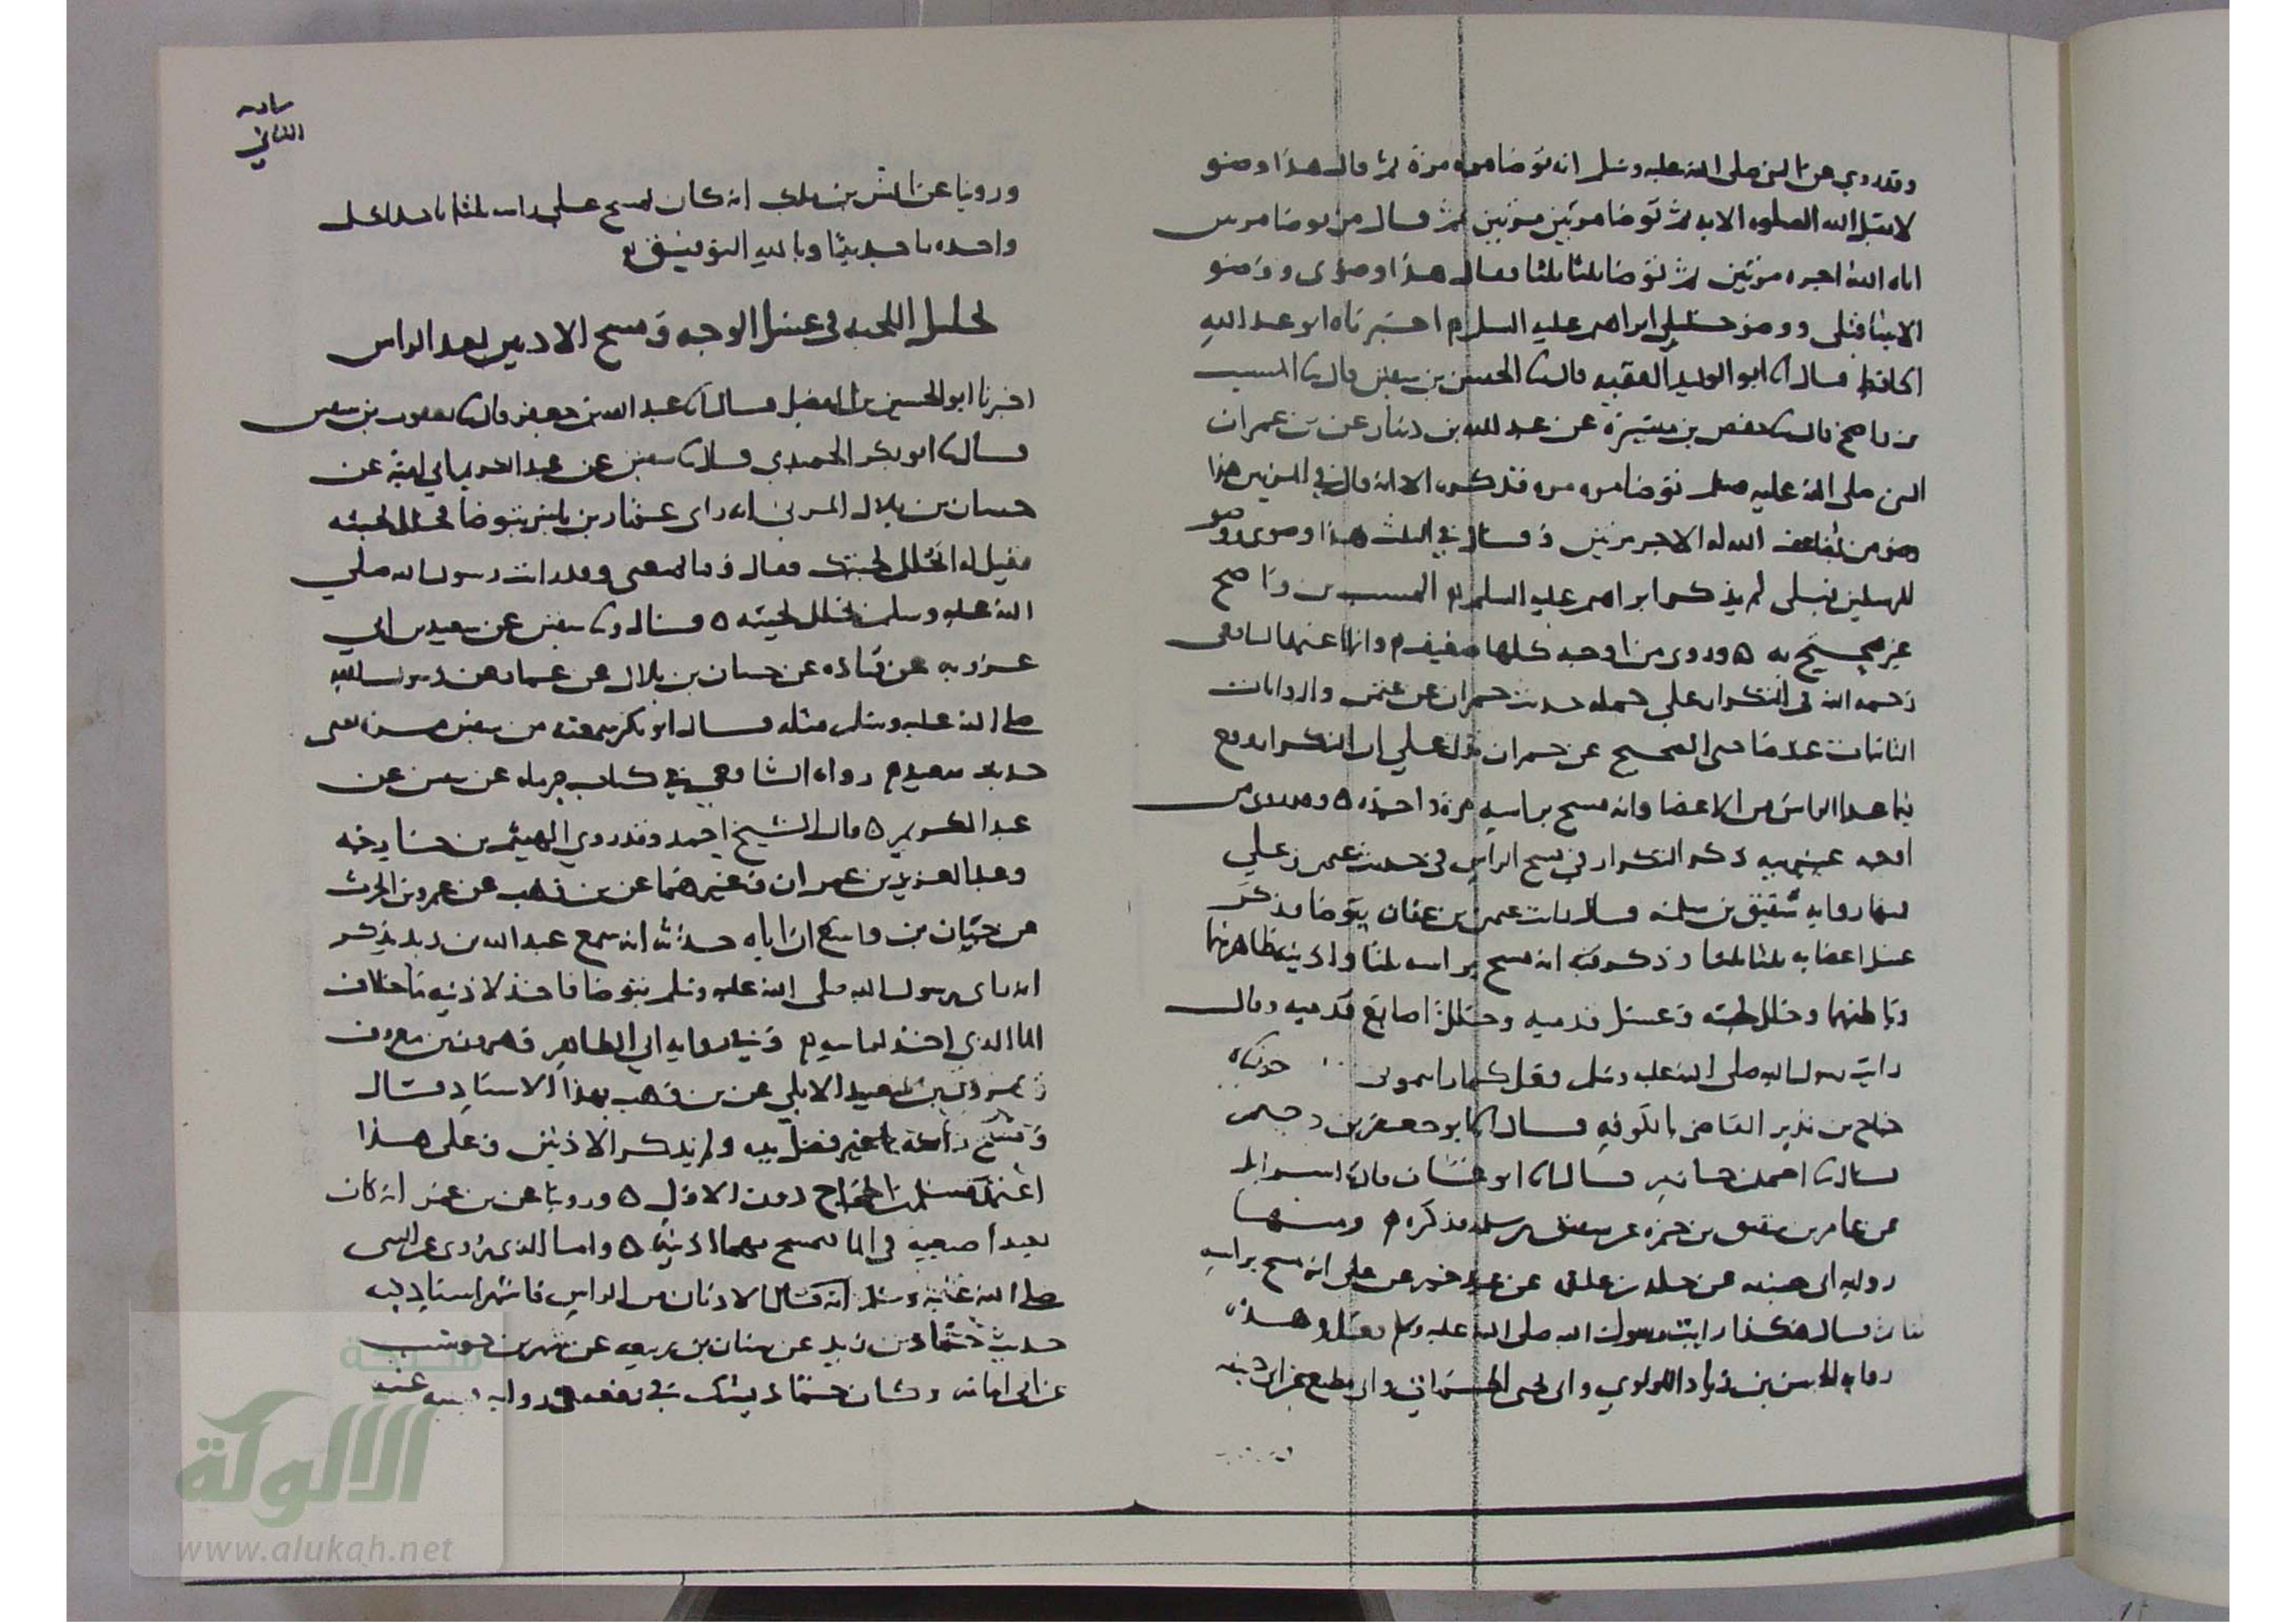 وقد روي عن النبي صلى الله عليه وسلم انه توضا مره مرة ثم قال هذا وضو
لا يقبل الله الصلوه الا به ثم توضا مرتين مرتين ثم قال من توضا مرتين
اتاه الله اجره مرتين ثم توضا ثلثا ثلثا فقال هذا وضوى ووضو
الانبيا قبلى ووضو خليلي ابراهيم عليه السلام اخبرناه ابو عبد الله
الحافظ قال انا ابو الوليد الفقيه قال نا الحسن بن سفين قال نا المسيب
بن واضح قال نا حفص بن ميسرة عن عبد الله بن دينار عن بن عمر ان
النبي صلى الله عليه وسلم توضا مره مره فذكره الا انه قال في المرتين هذا
وضو من يضاعف الله له الاجر مرتين وقال في الثلث هذا وضوى ووضو
للمرسلين قبلى لم يذكر ابراهيم عليه السلم المسيب بن واضح
غير محتج به وروى من اوجه كلها ضعيف وانما اعتمد الشافعى
رحمه الله فى التكرار على جمله حديث حمران عن عثمن والروايات
الثابتات المفسرة الصحيح عن حمران تدل على ان التكرار وقع
فيما عدا الراس من الاعضا وانه مسح براسه مرة واحدة وقد روى من
اوجه غريبه ذكر التكرار في مسح الراس فى حديث عثمن وعلي
فمنها روايه شقيق بن سلمه قال رايت عثمن بن عفان يتوضا فذكر
غسل اعضايه ثلثا ثلثا وذكر فيه انه مسح براسه ثلثا واذنيه ظاهرهما
وباطنهما وخلل لحيته وغسل قدميه وخلل اصابع قدميه وقال
رايت رسول الله صلى الله عليه وسلم فعل كما رايتمونى
جناح بن نذير القاضى بالكوفه قال انا ابو جعفر بن دحيم
قال نا احمد بن حازم قال نا ابو غسان قال نا اسرايل
عن عامر بن شقيق بن حمزه عن شقيق بن سلمه فذكره ومنها
روايه ابى حنيفه عن خلد بن علقمه عن عبد خير عن على انه مسح براسه
ثلثا ثم قال هكذا رايت رسول الله صلى الله عليه وسلم فعل وهذه
روايه الحسن بن زياد اللولوي وابى يحيى الحماني وابى مطيع عن ابى حنيفه
ورويا عن انس بن ملك انه كان يمسح على راسه ثلثا ياخذ لكل
واحده ما جديدا وبالله التوفيق
تخليل اللحيه فى غسل الوجه ومسح الاذنين بعد الراس
اخبرنا ابو الحسين بن الفضل قال انا عبد الله بن جعفر قال نا يعقوب بن سفين
قال نا ابو بكر الحميدي قال نا سفين عن عبد الكريم ابي امية عن
حسان بن بلال المزني انه راى عمار بن ياسر يتوضا فخلل لحيته
فقيل له اتخلل لحيتك فقال وما يمنعنى وقد رايت رسول الله صلي
الله عليه وسلم يخلل لحيته قال ونا سفين عن سعيد بن ابي
عروبه عن قتاده عن حسان بن بلال عن عمار عن رسول الله
صلى الله عليه وسلم مثله قال ابو بكر سمعته من سفين مرتين يعنى
حديث سعيد رواه الشافعي في كتاب حرمله عن سفين عن
عبد الكريم قال الشيخ احمد وقد روي الهيثم بن خارجه
وعبد العزيز بن عمران وغيرهما عن بن وهب عن عمرو بن الحرث
عن حبان بن واسع ان اباه حدثه انه سمع عبد الله بن زيد يذكر
انه راى رسول الله صلى الله عليه وسلم يتوضا فاخذ لاذنيه ما خلاف
الما الذي اخذ لراسه وفي روايه ابي الطاهر وهرون بن معروف
وهرون بن سعيد الايلي عن بن وهب بهذا الاسناد قال
ومسح راسه بما غير فضل يديه ولم يذكر الاذنين وعلى هذا
اعتمد مسلم بن الحجاج دون الاول وروينا عن بن عمر انه كان
يعيد اصبعيه فى الما فيمسح بهما اذنيه واما الذي يروى عن النبى
صلى الله عليه وسلم انه قال الاذنان من الراس فاشهر اسناد فيه
حديث حماد بن زيد عن سنان بن ربيعه عن شهر بن حوشب
عن ابى امامه وكان حماد يشك في رفعه فى روايه قتيبه عنه
شبكة
الألوكة
www.alukah.net